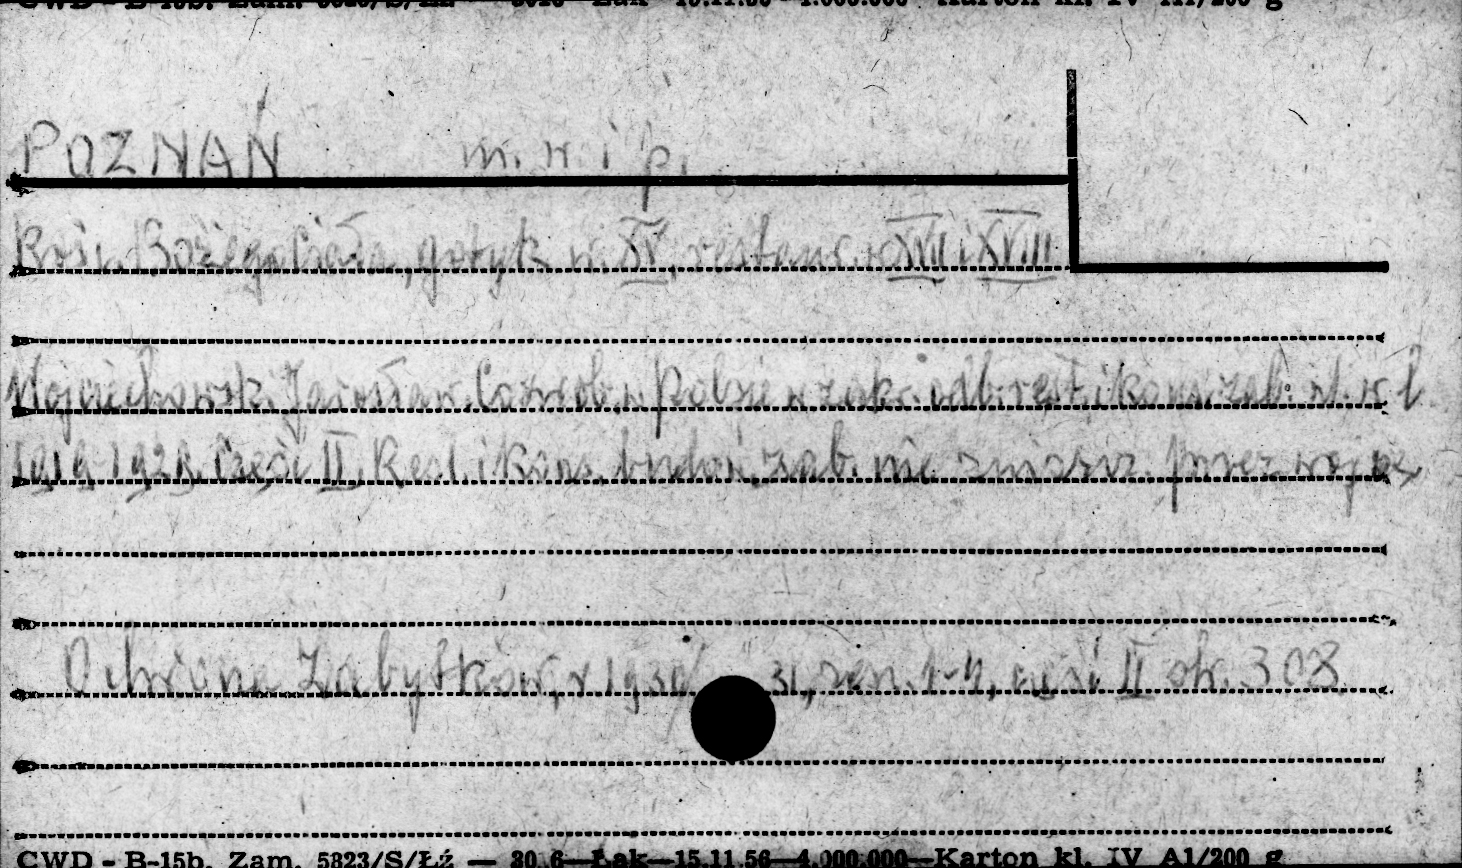 POZNAŃ m. w. i p.
Kośc. Bożego Ciała, gotyk w. XV, restaur. w XVII i XVIII
Wojciechowski Jarosław. Co zrob. w Polsce w zakr. odb. rest. i kons. zab. w l.
1919-1929. Część II. Rest. i kons. budow. zab. nie zniszcz. przez wojnę
Ochrona Zabytków, r 1930/31, zesz. 1-4, część II str. 308
CWD - B-15b. Zam. 5823/S/Łź — 30.6—Łak—15.11.56—4.000.000—Karton kl. IV A1/200 g